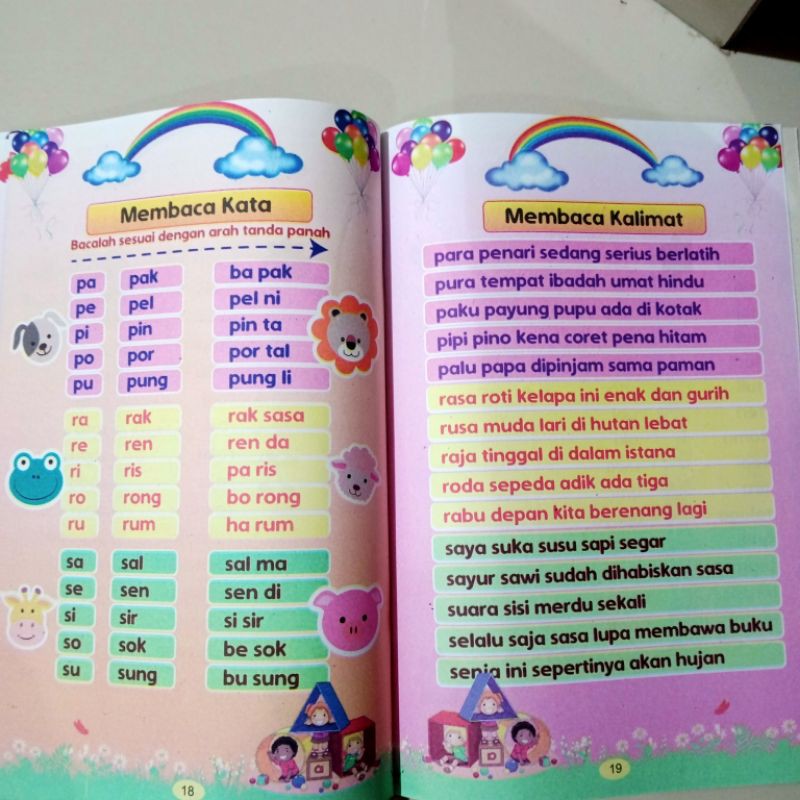 Membaca Kata
Bacalah sesuai dengan arah tanda panah
pa pak ba pak
pe pel pel ni
pi pin pin ta
po por por tal
pu pung pung li
ra rak rak sasa
re ren ren da
ri ris pa ris
ro rong bo rong
ru rum ha rum
sa sal sal ma
se sen sen di
si sir si sir
so sok be sok
su sung bu sung
a
18
Membaca Kalimat
para penari sedang serius berlatih
pura tempat ibadah umat hindu
paku payung pupu ada di kotak
pipi pino kena coret pena hitam
palu papa dipinjam sama paman
rasa roti kelapa ini enak dan gurih
rusa muda lari di hutan lebat
raja tinggal di dalam istana
roda sepeda adik ada tiga
rabu depan kita berenang lagi
saya suka susu sapi segar
sayur sawi sudah dihabiskan sasa
suara sisi merdu sekali
selalu saja sasa lupa membawa buku
senja ini sepertinya akan hujan
19